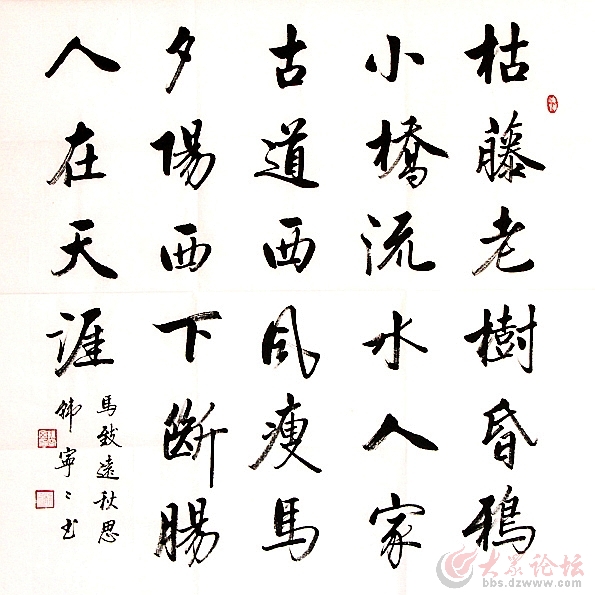 枯藤老樹昏鴉
小橋流水人家
古道西風瘦馬
夕陽西下斷腸
人在天涯
馬致遠秋思
寧〻书
大众论坛
bbs.dzwww.com